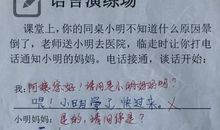 语言演练场
课堂上，你的同桌小明不知道什么原因晕
倒了，老师送小明去医院，临走时让你打电
话通知小明的妈妈。电话接通，谈话开始：
我：阿姨您好！请问是小明妈妈吗？
嗯！小明晕了，快过来。×
小明妈妈：是的，请问你是？